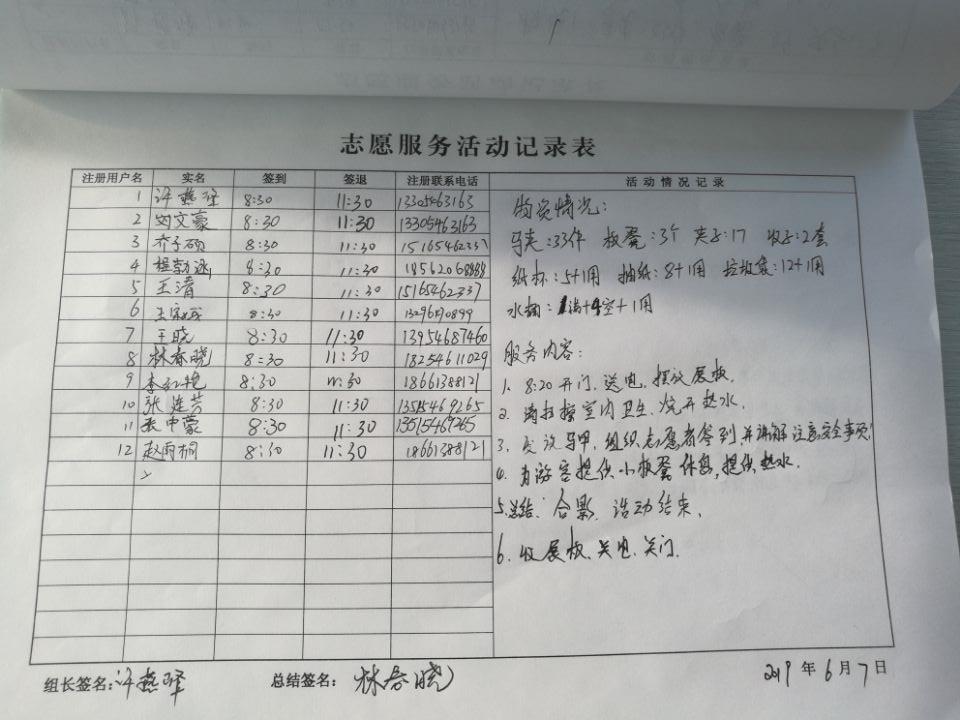 志愿服务活动记录表
注册用户名 实名 签到 签退 注册联系电话 活动情况记录
1 许燕 8:30 11:30 13305463163
2 刘文豪 8:30 11:30 13305463163
3 乔子硕 8:30 11:30 1516546233
4 8:30 11:30 1856206
5 王清 8:30 11:30 15165462337
6 8:30 11:30
7 王晓 8:30 11:30 13954687460
8 林春晓 8:30 11:30 18254611029
9 李红艳 8:30 11:30 18661388121
10 张连芳 8:30 11:30 13515469265
11 中豪 8:30 11:30 13515469265
12 赵雨桐 8:30 11:30 18661388121
物资情况:
马夹:33件 板凳:3个 夹子:17 2套
纸杯:5+1用 抽纸:8+1用 垃圾袋:12+1用
水桶:1满+4空+1用
服务内容:
1. 8:20开门、送电、摆放展板.
2. 打扫室内卫生、烧开热水.
3. 发放马甲、组织志愿者签到并讲解注意安全事项!
4. 为游客提供小板凳休息,提供热水.
5. 总结、合影、活动结束.
6. 收展板、关电、关门.
组长签名:许燕 总结签名:林春晓 2019年6月7日